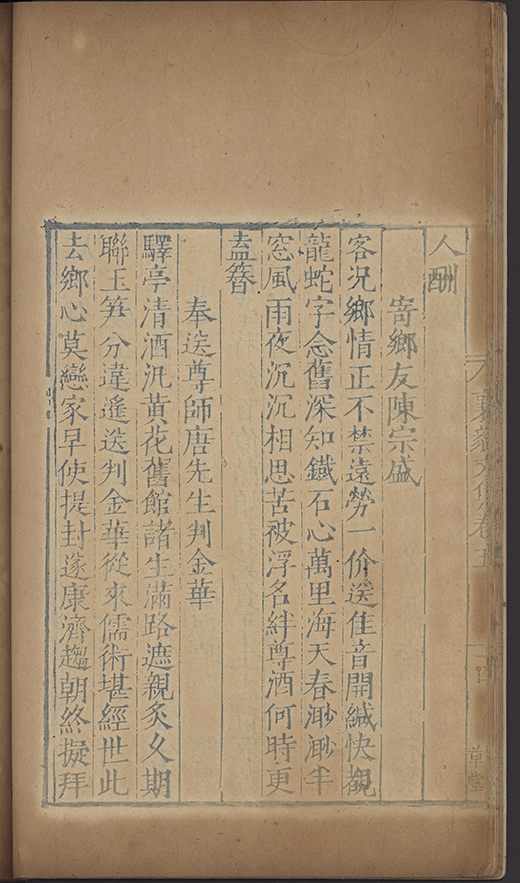 人酬
寄鄉友陳宗盛
客況鄉情正不禁遠勞一价送佳音開緘快覩
龍蛇字念舊深知鐵石心萬里海天春渺渺半
窓風雨夜沉沉相思苦被浮名絆尊酒何時更
盍簪
奉送尊師唐先生判金華
驛亭清酒汎黃花舊館諸生滿路遮親炙久期
聯玉笋分違遙送判金華從來儒術堪經世此
去鄉心莫戀家早使提封遂康濟趨朝終擬拜
襄毅文集卷五